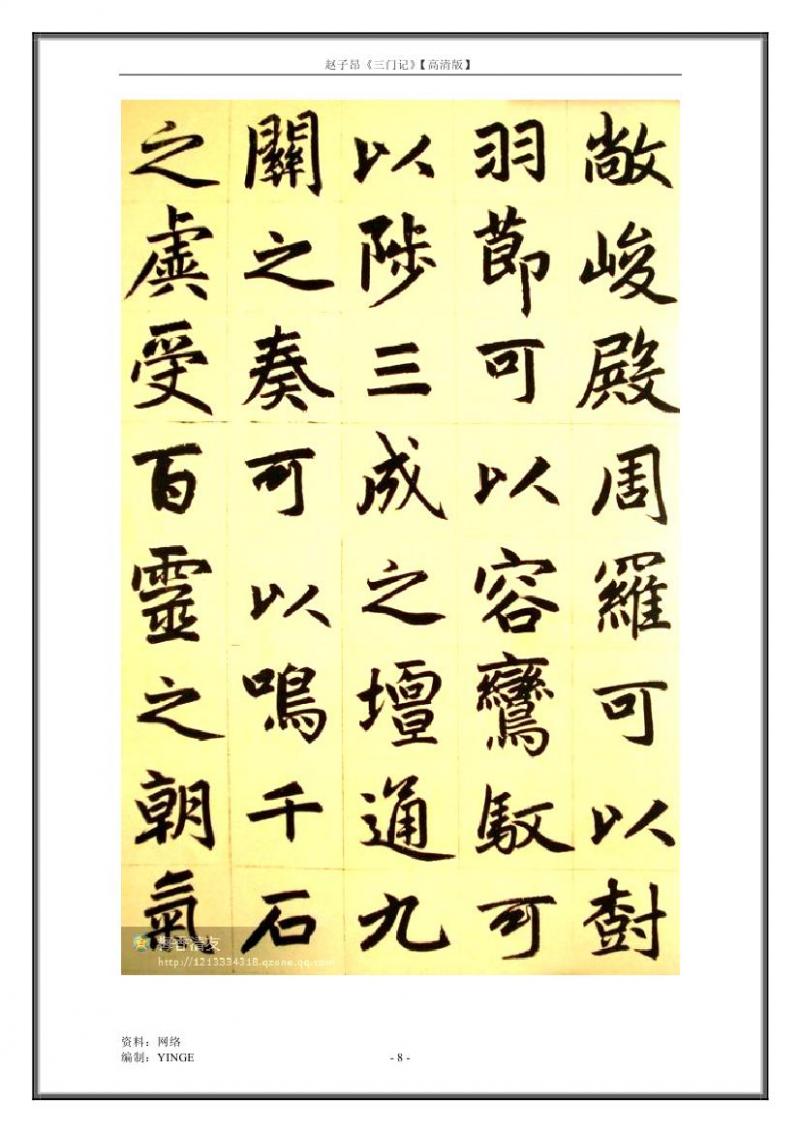 赵子昂《三门记》【高清版】
敞峻殿周羅可以樹
羽節可以容鸞馭可
以陟三成之壇通九
關之奏可以鳴千石
之虡受百靈之朝氣
清友
http://1213334318.qzone.qq.com
资料：网络
编制：YINGE
- 8 -